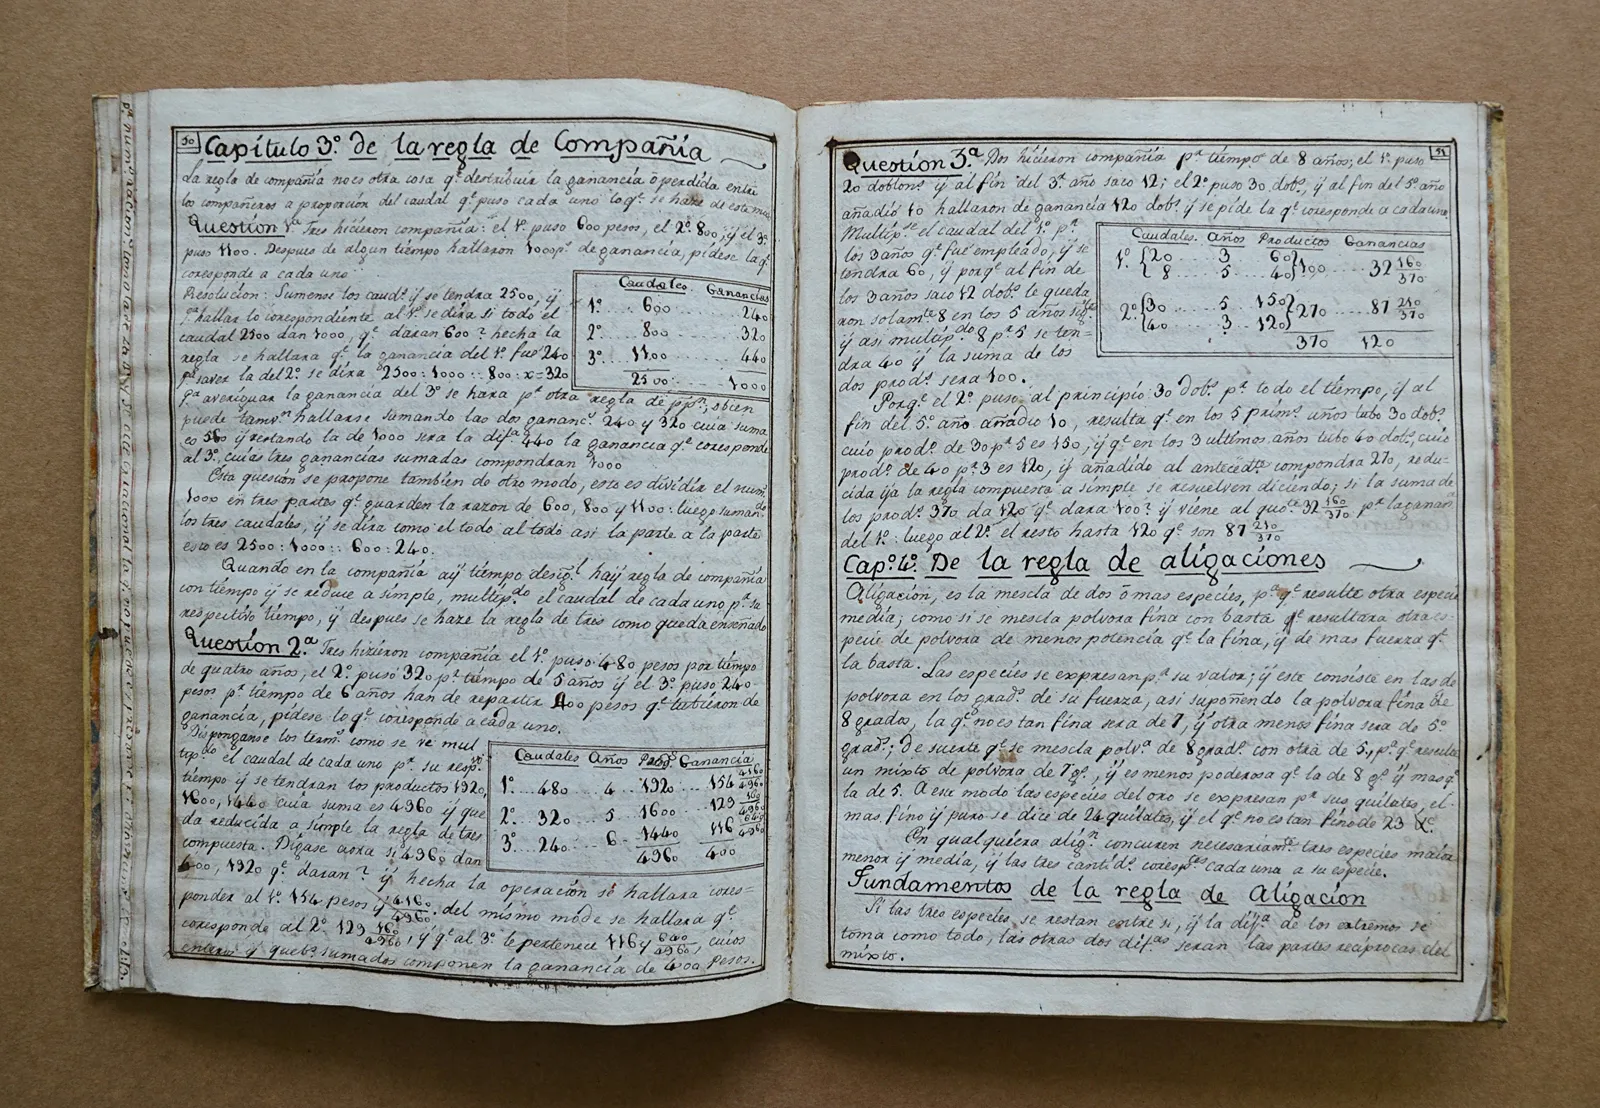 50
Capítulo 3º. De la regla de Compañía
La regla de compañia no es otra cosa qe. destribuir la ganancia ò perdida entre
los compañeros a proporcion del caudal qe. puso cada uno lo qe. se haze de este modo
Question 1ª. Tres hicieron compañia: el 1º. puso 600 pesos, el 2º. 800, ÿ el 3º.
puso 1100. Despues de algun tiempo hallaron 1000 ps. de ganancia, pidese la qe.
coresponde a cada uno
Resolucion: Sumense los caudˢ. ÿ se tendra 2500, ÿ
pª. hallar lo correspondiente al 1º. se dira si todo el
caudal 2500 dan 1000, qe. daran 600? hecha la
regla se hallara qe. la ganancia del 1º. fue 240
pª saver la del 2º. se dira 2500:1000::800:x=320
Caudales Ganancias
1º. 600 240
2º. 800 320
3º. 1100 440
2500 1000
pª averiguar la ganancia del 3º se hara pʳ. otra regla de ppⁿ., obien
puede tamvⁿ. hallarse sumando las dos ganancˢ. 240 y 320 cuia suma
es 560 ÿ restando la de 1000 sera la difª. 440 la ganancia qe. coresponde
al 3º., cuias tres ganancias sumadas compondran 1000
Esta quesion se propone tambien de otro modo, esto es dividir el num.
1000 en tres partes qe. guarden la razon de 600, 800 y 1100: luego sumando
los tres caudales, ÿ se dira como el todo al todo asi la parte a la parte
esto es 2500:1000::600:240.
Quando en la compañia aÿ tiempo desigˡ. haÿ regla de compañia
con tiempo ÿ se reduce a simple, multipᵈᵒ. el caudal de cada uno pʳ. su
respectivo tiempo, ÿ despues se haze la regla de tres como queda enseñado
Question 2.ª Tres hizieron compañia el 1º. puso 480 pesos por tiempo
de quatro años, el 2º. puso 320 pʳ. tiempo de 5 años ÿ el 3º. puso 240
pesos pʳ. tiempo de 6 años han de repartir 400 pesos qe. tubieron de
ganancia, pidese lo qe. coresponde a cada uno.
Disponganse los termˢ. como se ve mul
tipᵈᵒ. el caudal de cada uno pʳ. su respᵛᵒ
tiempo ÿ se tendran los productos 1920,
1600, 1440 cuia suma es 4960 ÿ que
da reducida a simple la regla de tres
compuesta. Digase aora si 4960 dan
Caudales Años Prodˢ. Ganancia
1º. 480 4 1920 154 4160/4960
2º. 320 5 1600 129 160/4960
3º. 240 6 1440 116 640/4960
4960 400
400, 1920 qe. daran? ÿ hecha la operacion se hallara cores=
ponder al 1º. 154 pesos ÿ 4160/4960, del mismo mode se hallara qe.
coresponde al 2º. 129 160/4960, ÿ qe. al 3º. le pertenece 116 y 640/4960, cuios
enteros ÿ quebˢ. sumados componen la ganancia de 400 Pesos.
51
Question 3.ª Dos hicieron compañia pʳ. tiempo de 8 años; el 1º. puso
20 doblonˢ. ÿ al fin del 3º. año saco 12; el 2º. puso 30 dobˢ., ÿ al fin del 5º. año
añadiò 10 hallaron de ganancia 120 dobˢ. ÿ se pide la qe. coresponde a cada uno.
Multipˢᵉ. el caudal del 1º. pʳ.
los 3 años qe. fue empleado, ÿ se
tendra 60, ÿ porqe. al fin de
los 3 años saco 12 dobˢ. le queda
ron solamᵗᵉ 8 en los 5 años sigᵗᵉˢ
ÿ asi multipᵈᵒ. 8 pʳ. 5 se ten=
dra 40 ÿ la suma de los
dos prodˢ. sera 100.
Caudales. Años Productos Ganancias
1º. 20 3 60
8 5 40 100 32 160/370
2º. 30 5 150 270 87 210/370
40 3 120
370 120
Porqe. el 2º. puso al principio 30 dobˢ. pʳ. todo el tiempo, ÿ al
fin del 5º. año añadiò 10, resulta qe. en los 5 primˢ. años tubo 30 dobˢ.
cuio prodᵒ. de 30 pʳ 5 es 150; ÿ qe. en los 3 ultimos años tubo 40 dobˢ., cuio
prodᵒ. de 40 pʳ. 3 es 120, ÿ añadido al antecedᵗᵉ compondra 270, redu-
cida ÿa la regla compuesta a simple se resuelven diciendo; si la suma de
los prodˢ. 370 da 120 qe. dara 100? ÿ viene al quoᵗᵉ. 32 160/370 pʳ la ganan
del 1º.: luego al 2º. el resto hasta 120 qe. son 87 210/370
Capº. 4º. De la regla de aligaciones
Aligacion, es la mescla de dos ò mas especies, pª. qe. resulte otra especie
media; como si se mescla polvora fina con basta qe resultara otra es-
pecie de polvora de menos potencia qe. la fina, ÿ de mas fuerza qe.
la basta. Las especies se expresan pʳ. su valor; ÿ este consiste en las de
polvora en los gradˢ. de su fuerza, asi suponiendo la polvora fina de
8 grados, la qe. no es tan fina sera de 7, ÿ otra menos fina sera de 5º
gradˢ.; de suerte qe. se mescla polvª. de 8 gradˢ. con otra de 5, pª. qe. resulte
un mixto de polvora de 7 gˢ., ÿ es menos poderosa qe. la de 8 gˢ. ÿ mas qe.
la de 5. A ese modo las especies del oro se expresan pʳ. sus quilates, el
mas fino ÿ puro se dice de 24 quilates, ÿ el qe. no es tan fino de 23 &c.
En qualquiera aligⁿ. concuren necesariamᵗᵉ. tres especies maior
menor ÿ media, ÿ las tres cantidˢ. corespˢ. cada una a su especie.
Fundamentos de la regla de Aligación
Si las tres especies se restan entre si, ÿ la difª. de los extremos se
toma como todo, las otras dos difᵃˢ. seran las partes reciprocas del
mixto.